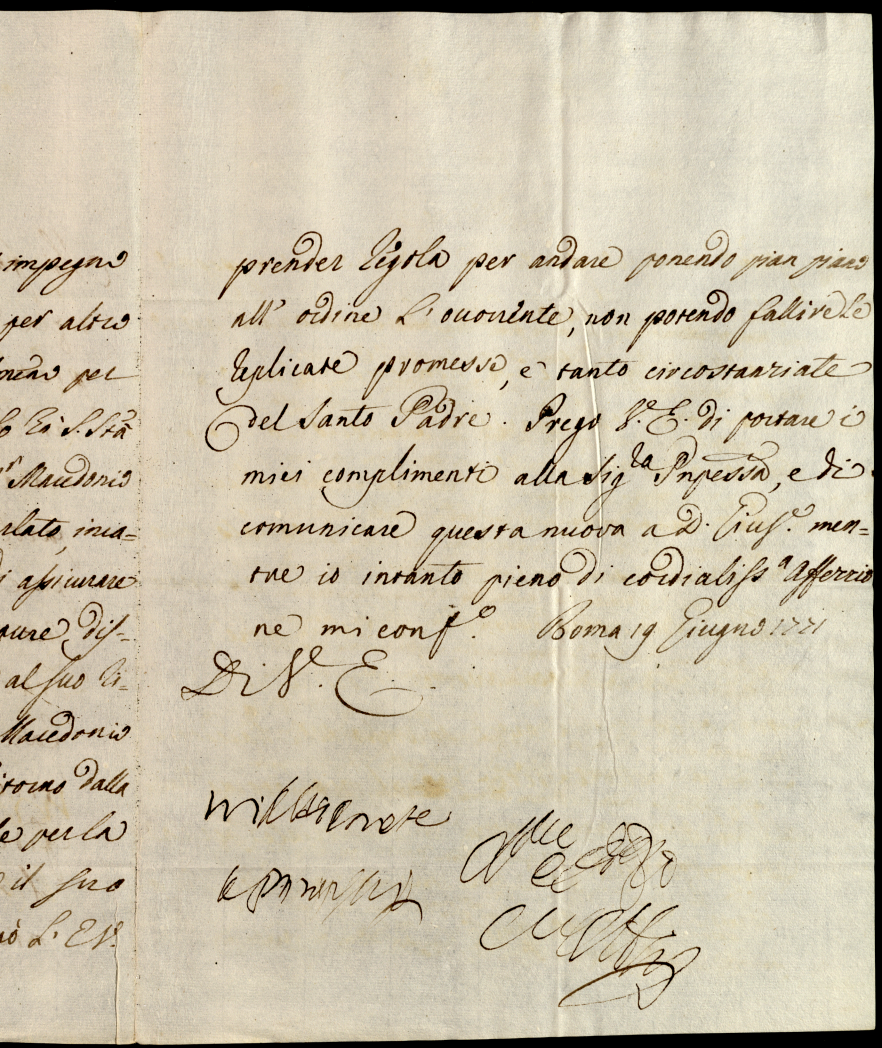 impegno
per altro
per
S. Stà
Macedonio
rlato, inca=
i assicurare
pure, dis-
al suo Ri-
Macedonio
itorno dalla
le per la
il suo
L' E V.
prender regola per andare ponendo pian piano
all' ordine l' occorrente, non potendo fallire le
replicate promesse, e tanto circostanziate
del Santo Padre. Prego V. E. di portare i
miei complimenti alla Sig.ra Pnpessa, e di
comunicare questa nuova a D. Gius.e men-
tre io intanto pieno di cordialiss.a affezzio
ne mi conf.o Roma 19 Giugno 1771
Di V. E.